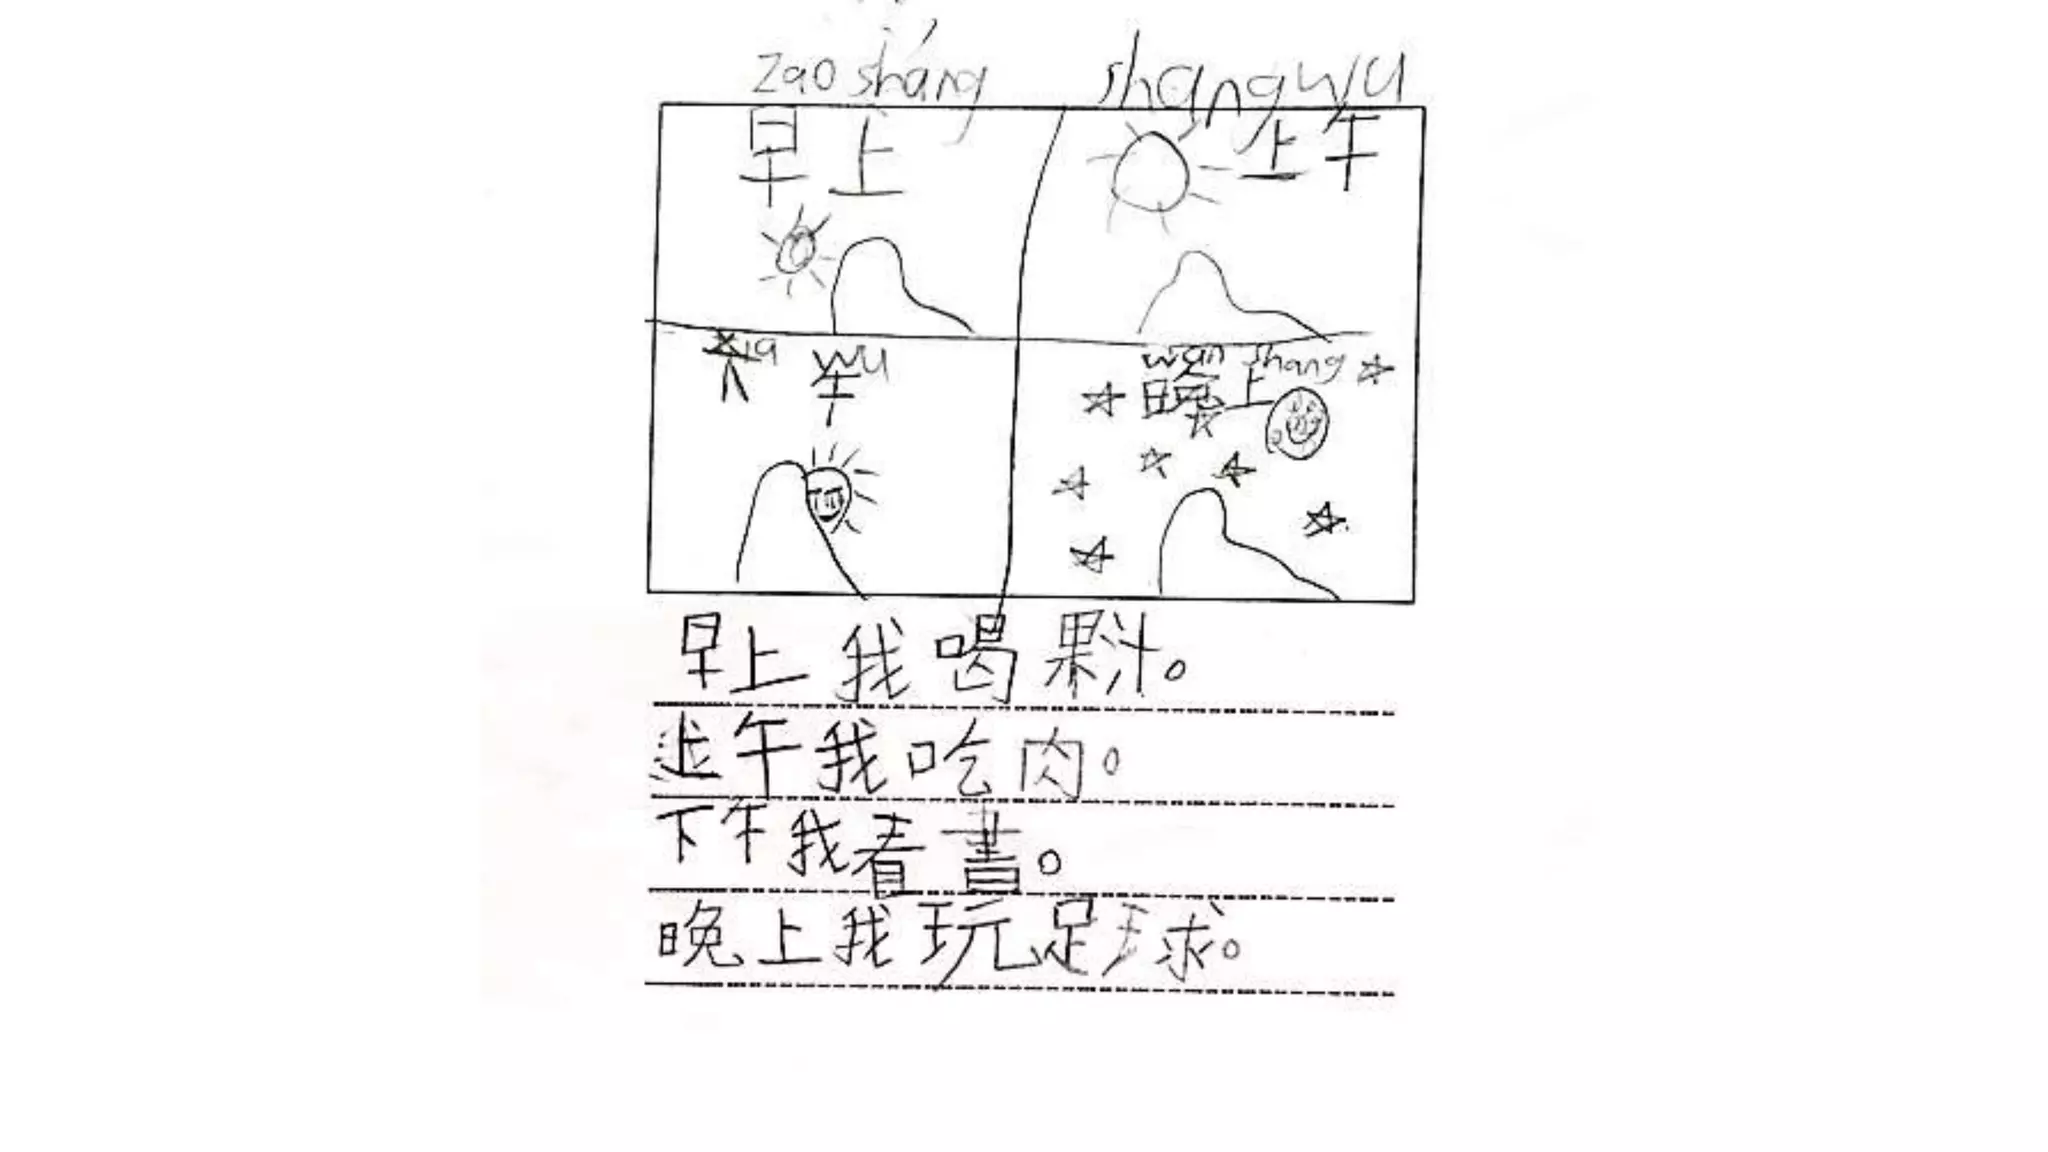 zao sháng shang wu
早上 上午
xia wu wan shang
下午 晚上
早上我喝果汁。
上午我吃肉。
下午我看書。
晚上我玩足球。